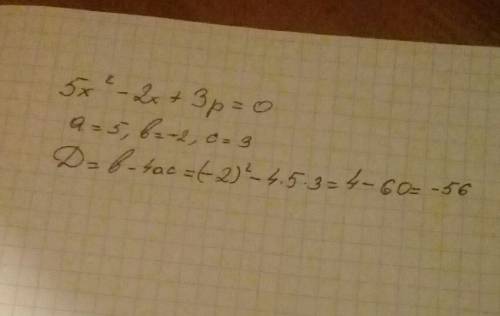 5x² - 2x + 3p = 0
a = 5, b = -2, c = 3
D = b - 4ac = (-2)² - 4·5·3 = 4 - 60 = -56